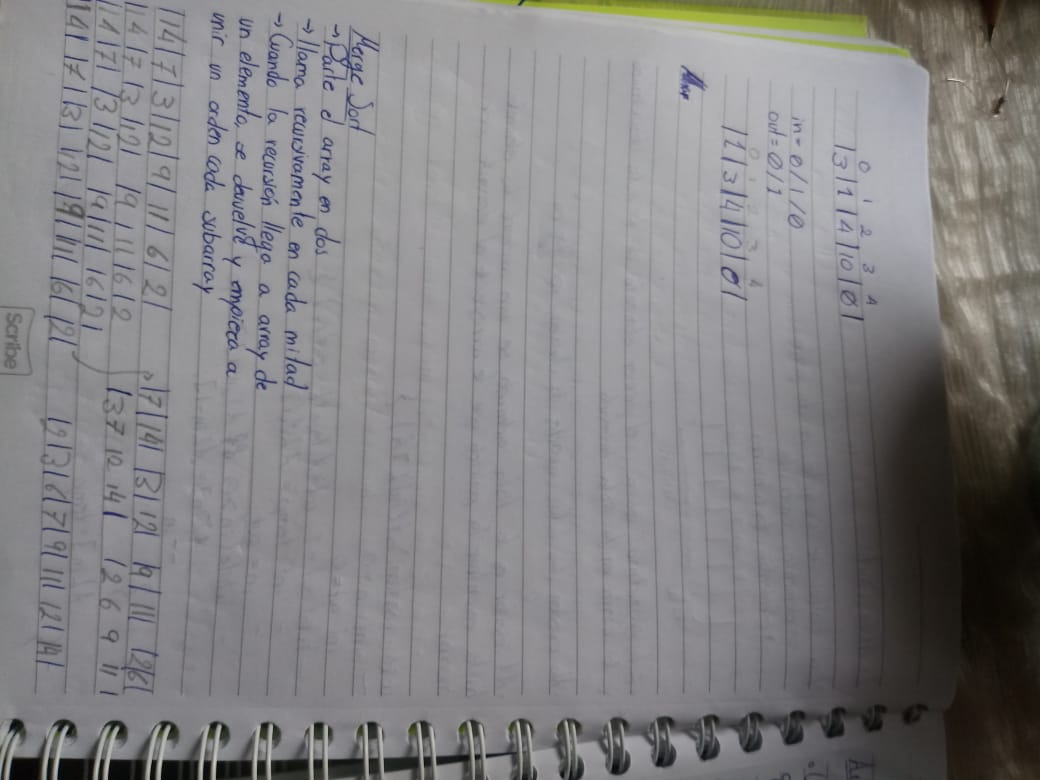 0 1 2 3 4
|3|1|4|10|0|
in = 0/1/0
out = 0/1
0 1 2 3 4
|1|3|4|10|0|
Merge Sort
→ Parte el array en dos
→ llama recursivamente en cada mitad
→ Cuando la recursión llega a array de
un elemento se devuelve y empieza a
unir un orden cada subarray
|14|7|3|12|9|11|6|2|
|14|7|3|12| |9|11|6|2
|14|7| |3|12| |9|11| |6|2|
|14| |7| |3| |12| |9| |11| |6| |2|
|7|14| |3|12| 9|11| |2|6|
|3 7 12 14| |2 6 9 11|
|2|3|6|7|9|11|12|14|
Scribe